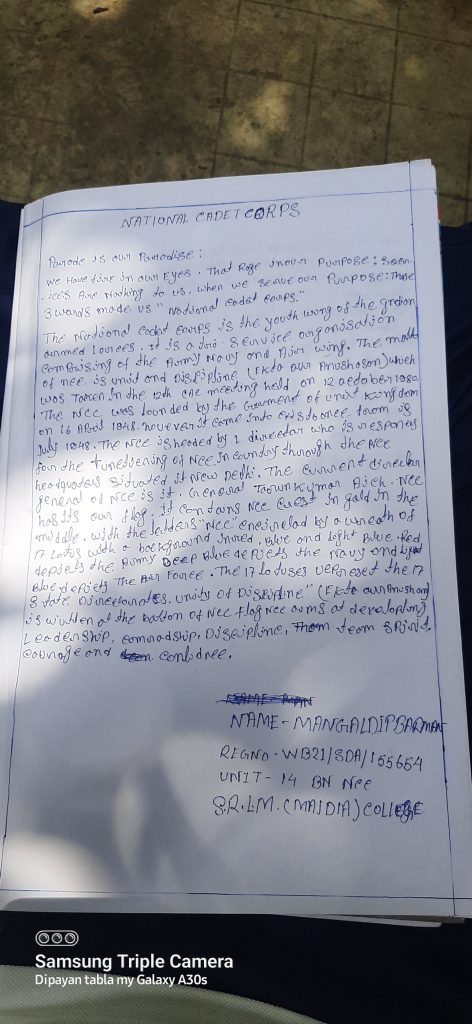 NATIONAL CADET CORPS
Parade is our Paradise;
We Have fire in our Eyes. That Rage in our Purpose; Sacri-
ices Are Nothing to us. when we serve our Purpose: These
3 words made us "National cadet corps."
The National cadet corps is the youth wing of the Indian
armed Forces. It is a tri-Service organisation
comprising of the Army Navy and Air wing. The motto
of ncc is unit and Discipline (Ekta aur Anushasan) which
was Taken in the 12th CAC meeting held on 12 october 1980.
The Ncc was founded by the Government of unit Kingdom
on 16 April 1948. however it come into existance from 15
July 1948. The Ncc is headed by 1 director who is respones
for the functioning of Ncc in country through the Ncc
headquators situated it New Delhi. The current director
general of Ncc is lt. General Tarun Kumar Aich. Ncc
has its our flag. it contains Ncc Crest in gold in the
middle, with the letters "Ncc" encircled by a wreath of
17 Lotus with a background in red, blue and light Blue. Red
depicts the Army Deep Blue depicts the Navy and light
Blue depicts The Air Force. The 17 lotuses represet the 17
State Directorates, unity of Discipline" (Ekta aur Anushasan)
is written at the bottom of Ncc flag Ncc aims at developing
Leadership, comradship, Discipline, team Spirit,
courage and confidnce.
NAME - MANGALDIP BARMAN
REGNO - WB21/SDA/155654
UNIT - 14 BN Ncc
S.R.L.M. (MAJDIA) COLLEGE
Samsung Triple Camera
Dipayan tabla my Galaxy A30s